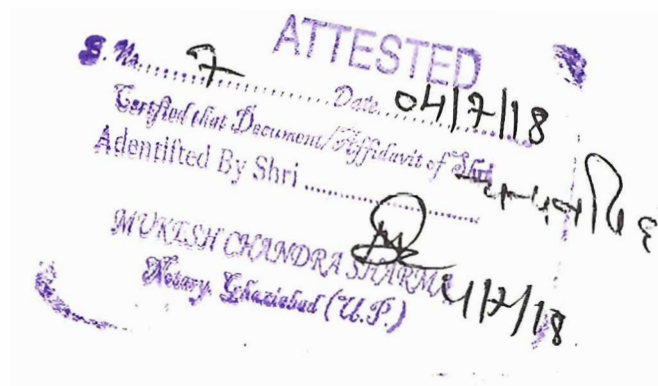 ATTESTED
S. No. 7 Date 04/7/18
Certified that Document/Affidavit of Shri
Adentifted By Shri
MUKESH CHANDRA SHARMA
Notary, Ghaziabad (U.P.)
4/7/18